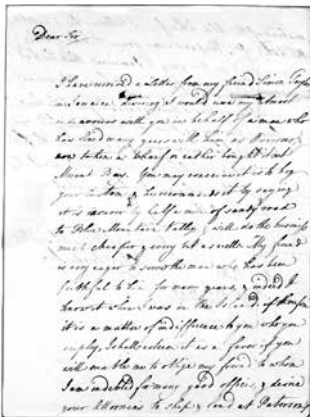 Dear Sir
I have received a Letter from my friend Simon Taylor
in Jamaica, desiring I would use my utmost
endeavours with you in behalf of a man who
has lived many years with him as Overseer,
now taken a Wharf or rather bought it at
Morant Bay. You may conceive it is to beg
your Custom, & he recommends it by saying
it is nearer by half a mile of sandy road
to Blue Mountain Valley, & will do the business
much cheaper, & every bit as well. My friend
is very eager to serve the man who has been
faithful to him for many years, & indeed I
know it when I was in the Island. if therefore
it is a matter of indifference to you who you
employ, I shall esteem it as a favor if you
will enable me to oblige my friend to whom
I am indebted for many good offices, & desire
your Attornies to ship & land at Paterson's